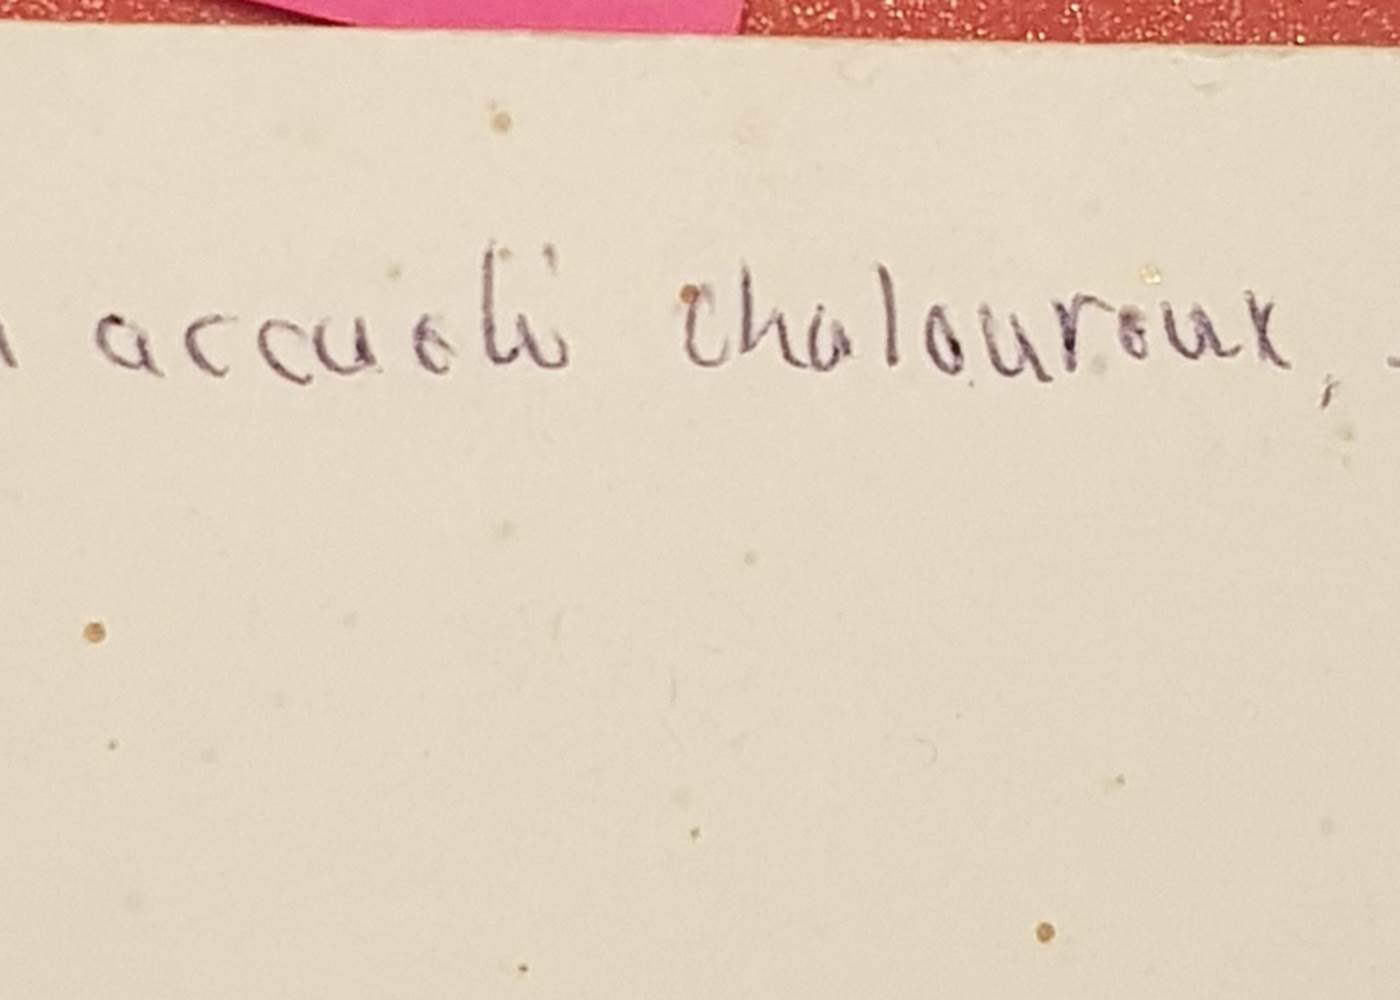 accueli chaloureux,